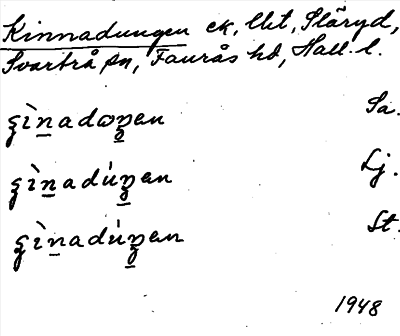 Kinnadungen ek, lht, Släryd,
Svartrå sn, Faurås hd, Hall. l.
ʂìn̲adωŋ̲en Sa.
ʂìn̲adúŋ̲en Lj.
ʂìn̲adúŋ̲en St.
1948